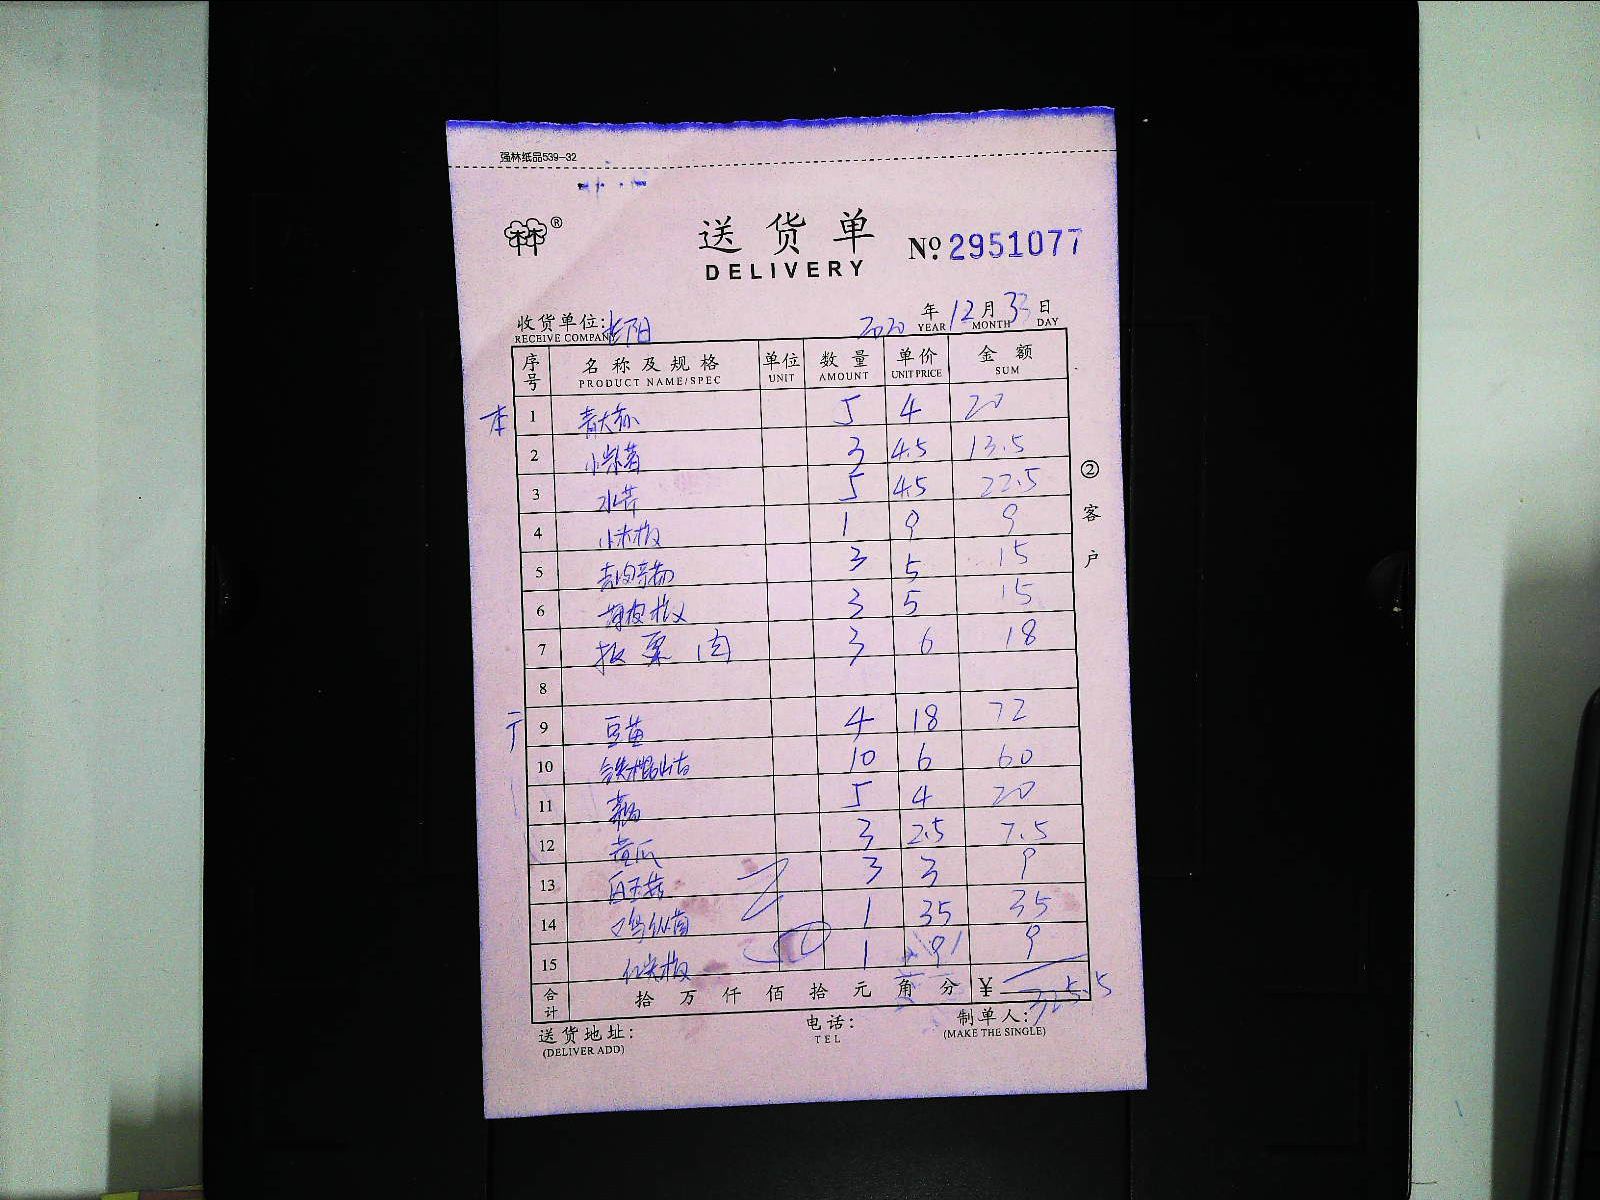 强林纸品539-32
林林®
送货单
DELIVERY
No. 2951077
收货单位:
RECEIVE COMPANY
2020 年 12 月 日
YEAR MONTH DAY
序号 名称及规格 单位 数量 单价 金额
PRODUCT NAME/SPEC UNIT AMOUNT UNIT PRICE SUM
本 1 青大蒜 5 4 20
2 小紫薯 3 4.5 13.5
3 水芹 5 4.5 22.5
4 小米椒 1 9 9
5 3 5 15
6 薄皮椒 3 5 15
7 板栗肉 3 6 18
8
9 豆苗 4 18 72
10 铁棍山药 10 6 60
11 5 4 20
12 黄瓜 3 2.5 7.5
13 3 3 9
14 鸡枞菌 1 35 35
15 红尖椒 1 9 9
合计 拾 万 仟 佰 拾 元 角 分 ¥ 325.5
送货地址: 电话: 制单人:
(DELIVER ADD) TEL (MAKE THE SINGLE)
②客户